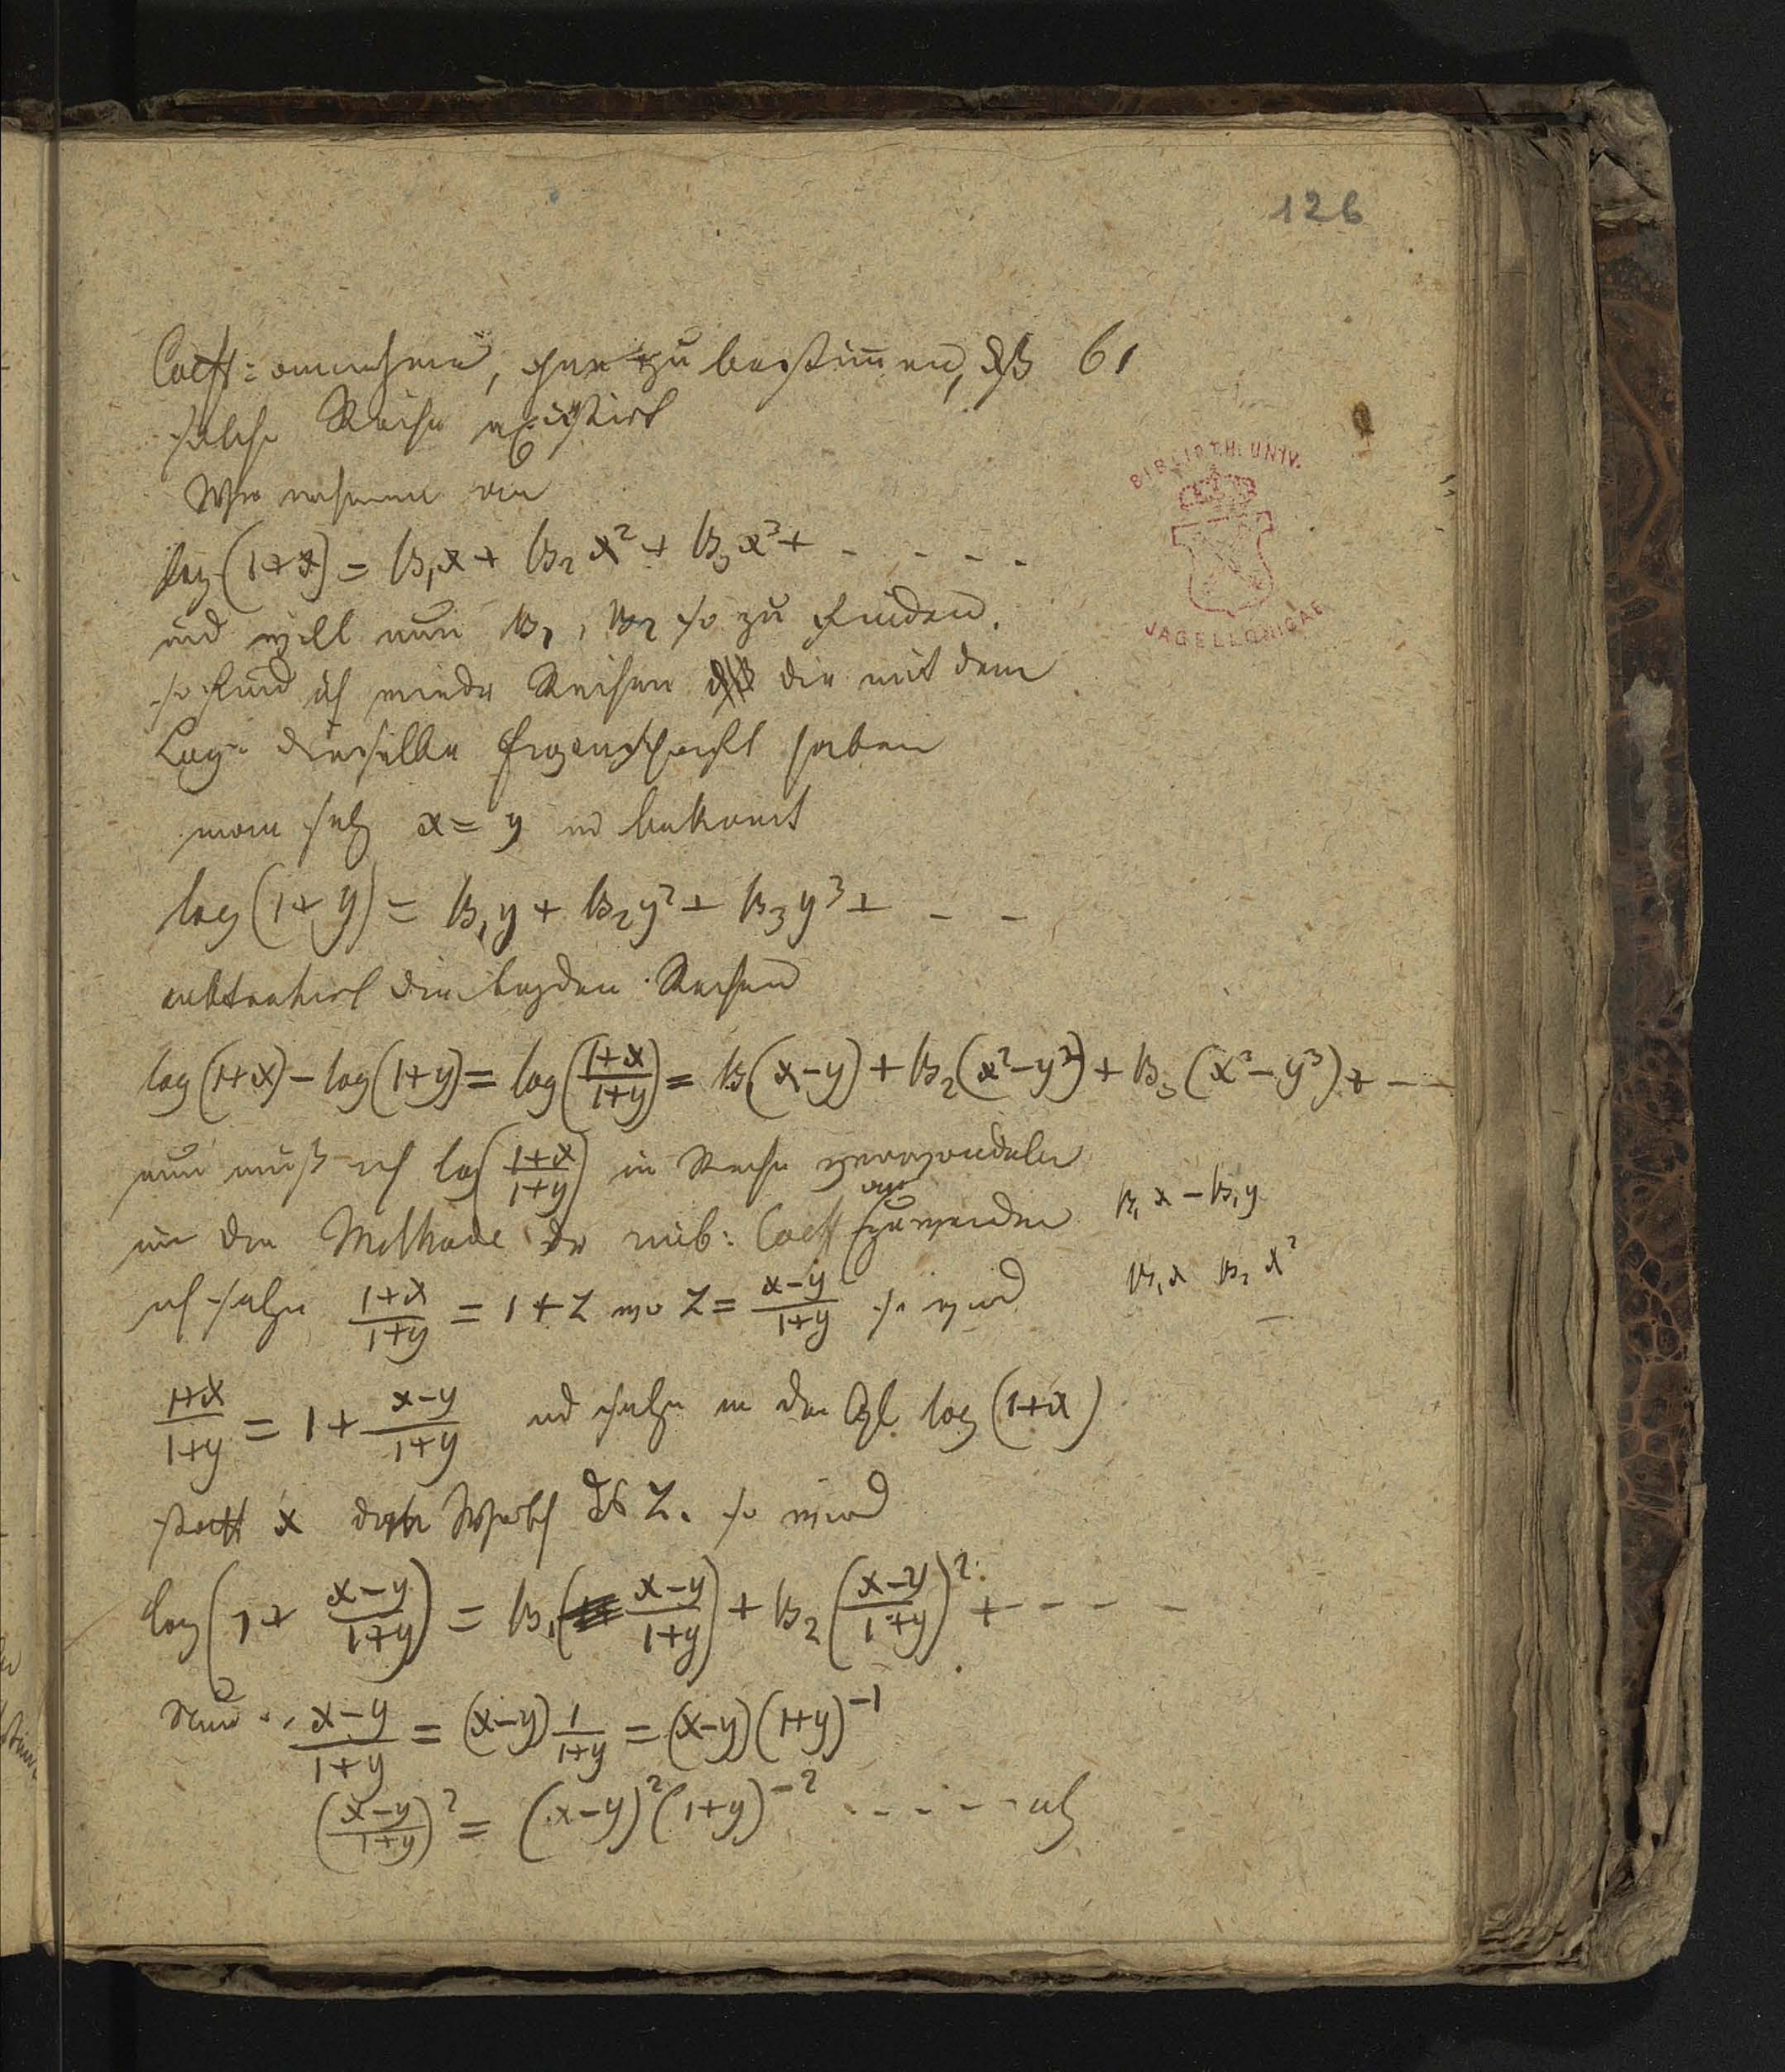 126
Coeff: annehmen, ohne zu bestim̄en, dß 61
solche Reihe existirt
Wir nehmen an
log (1+x) = B₁x + B₂x² + B₃x³ + - - - -
und will nun B₁, B₂ so zu finden.
so find ich wieder Reihen die mit dem
Log: dieselbe Eigenschaft haben
man setz x = y und bekomt
log (1+y) = B₁y + B₂y² + B₃y³ + - -
subtrahirt die beyden Reihen
log (1+x) - log (1+y) = log ((1+x)/(1+y)) = B₁(x-y) + B₂(x²-y²) + B₃(x³-y³) + - -
nun muß ich log ((1+x)/(1+y)) in Reihe verwandeln
um die Methode der unb: Coeff anzuwenden B₁x - B₁y
ich setze (1+x)/(1+y) = 1 + z wo z = (x-y)/(1+y) so wird B₁x B₂x²
(1+x)/(1+y) = 1 + (x-y)/(1+y) und setze in der Gl. log (1+x)
statt x den Werth des z. so wird
log (1 + (x-y)/(1+y)) = B₁((x-y)/(1+y)) + B₂((x-y)/(1+y))² + - - - -
Nun (x-y)/(1+y) = (x-y) 1/(1+y) = (x-y)(1+y)⁻¹
((x-y)/(1+y))² = (x-y)²(1+y)⁻² - - - - -
BIBLIOTH. UNIV.
JAGELLONICAE